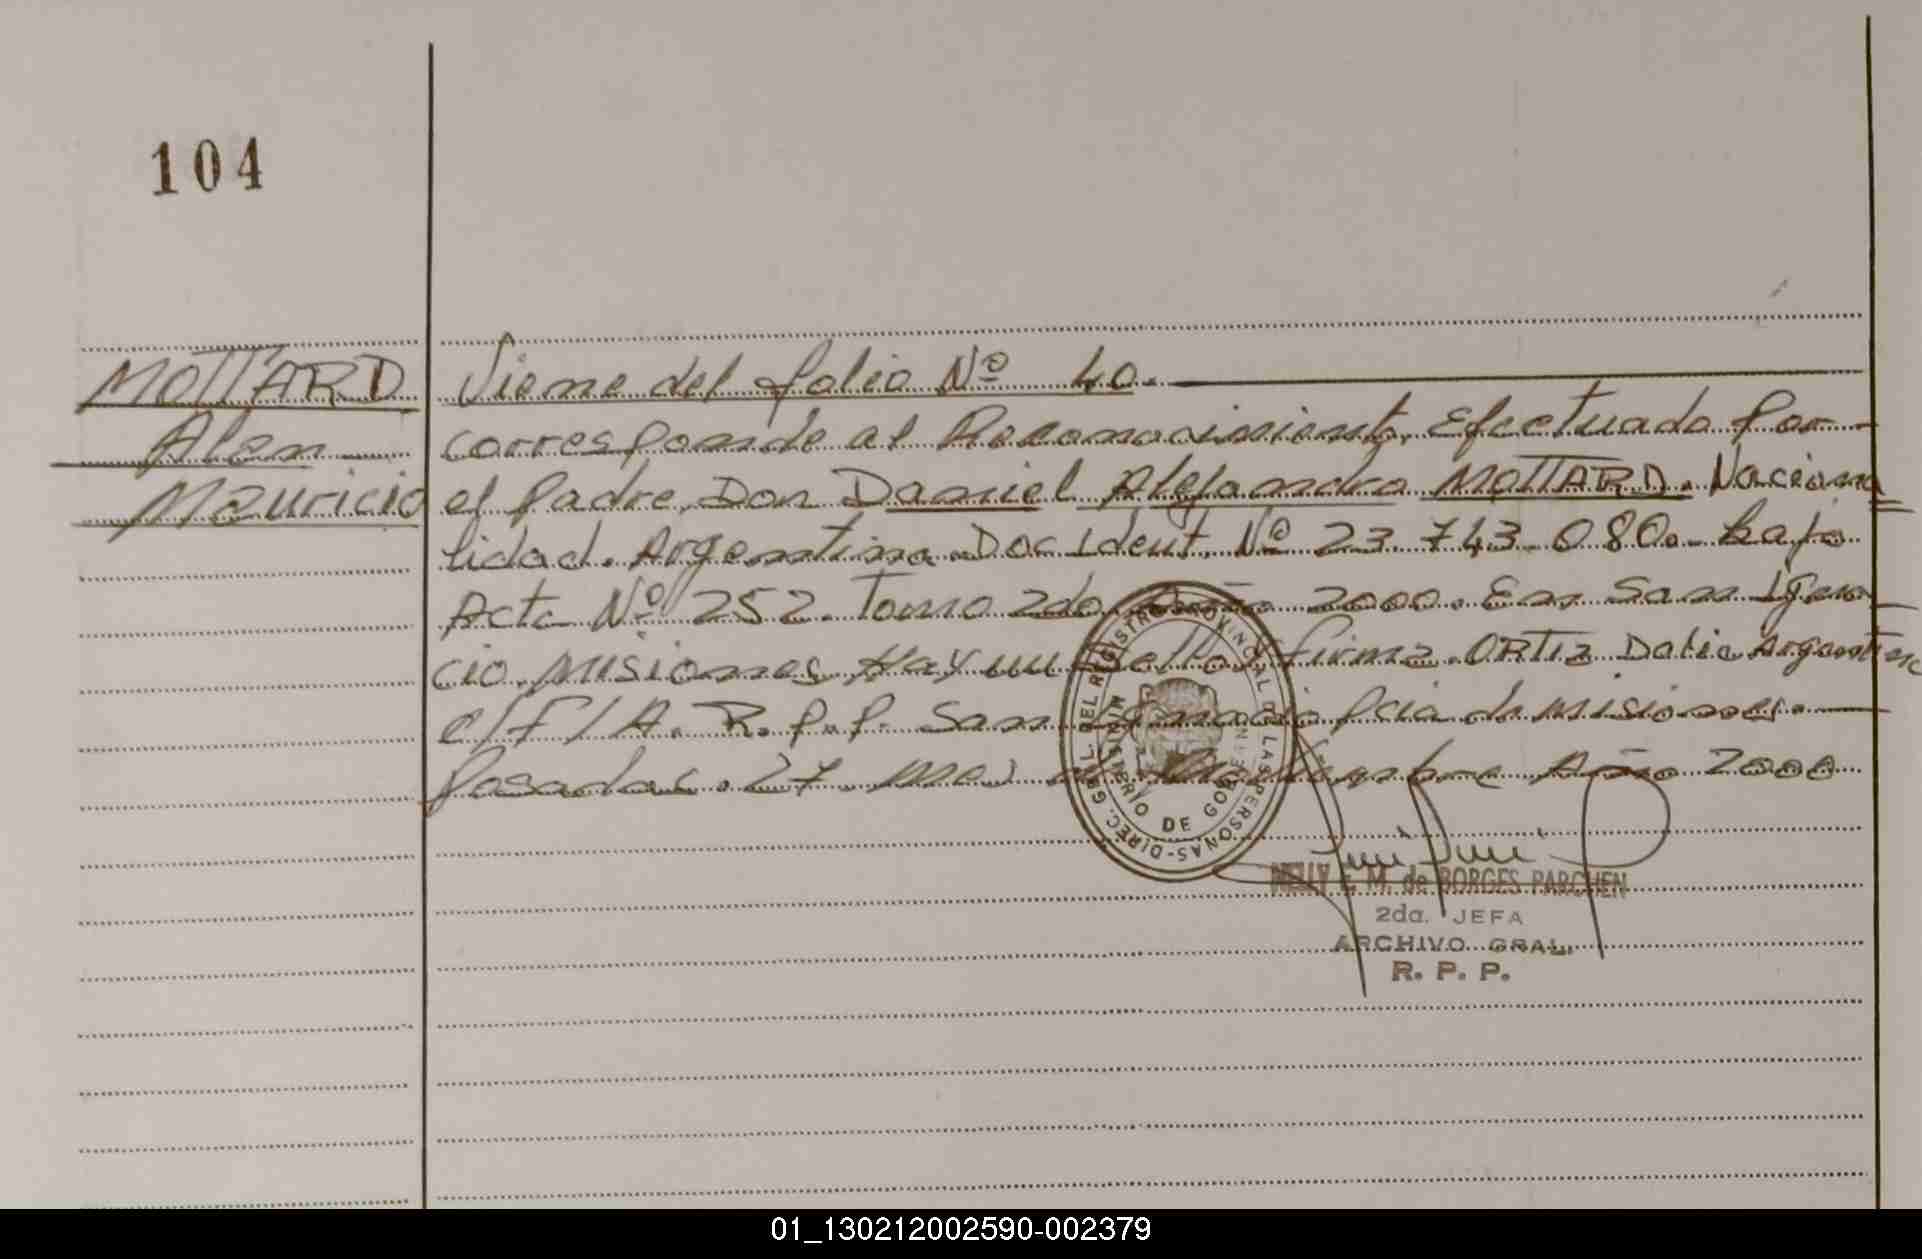 104
MOTTARD
Alen
Mauricio
Viene del folio Nº 40.
corresponde al Reconocimiento, Efectuado por
el padre, Don Daniel Alejandro MOTTARD. Naciona
lidad. Argentina. Doc Ident. Nº 23.743.080. bajo
Acta Nº 252. Tomo 2do. Año 2000. En San Igna
cio. Misiones Hay un sello y firma. ORTIZ Dalia Argentina
e/F/A. R. p. p. San Ignacio pcia de Misiones.
Posadas. 27 Año 2000
DIREC. GRAL. DEL REGISTRO PROVINCIAL DE LAS PERSONAS
MINISTERIO DE GOBIERNO
NELLY E. M. de BORGES PARCHEN
2da. JEFA
ARCHIVO GRAL.
R. P. P.
01_130212002590-002379